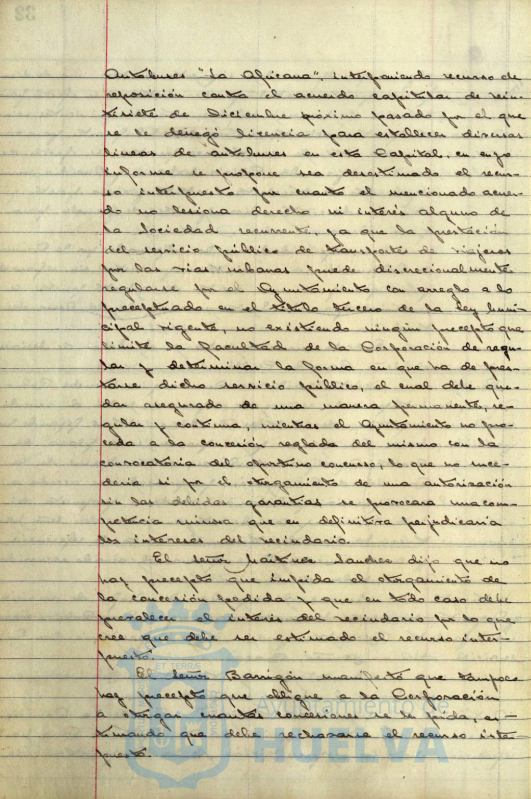 Autobuses "La Africana", interponiendo recurso de
reposición contra el acuerdo capitular de vein-
tisiete de Diciembre próximo pasado por el que
se le denegó licencia para establecer diversas
líneas de autobuses en esta Capital, en cuyo
informe se propone sea desestimado el recur-
so interpuesto por cuanto el mencionado acuer-
do no lesiona derecho ni interés alguno de
la Sociedad recurrente, ya que la prestación
del servicio público de transportes de viajeros
por las vías urbanas puede discrecionalmente
regularse por el Ayuntamiento con arreglo a lo
preceptuado en el título tercero de la Ley Muni-
cipal vigente, no existiendo ningún precepto que
limite la facultad de la Corporación de regu-
lar y determinar la forma en que ha de pres-
tarse dicho servicio público, el cual debe que-
dar asegurado de una manera permanente, re-
gular y continua, mientras el Ayuntamiento no pro-
ceda a la concesión reglada del mismo con la
convocatoria del oportuno concurso, lo que no suce-
dería si por el otorgamiento de una autorización
sin las debidas garantías se provocara una com-
petencia ruinosa que en definitiva perjudicaría
los intereses del vecindario.
El señor Martínez Sánchez dijo que no
hay precepto que impida el otorgamiento de
la concesión pedida y que en todo caso debe
prevalecer el interés del vecindario por lo que
cree que debe ser estimado el recurso inter-
puesto.
El señor Barrigón manifestó que tampoco
hay precepto que obligue a la Corporación
a otorgar cuantas concesiones se le pida, es-
timando que debe rechazarse el recurso inter-
puesto.
ET TERRAE
Ayuntamiento de
HUELVA